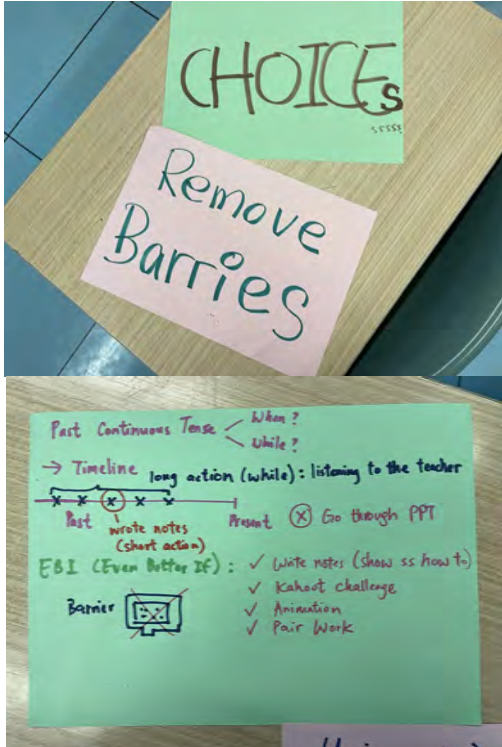 CHOICEs
sssss
Remove
Barries
Past Continuous Tense
When?
While?
→ Timeline
long action (while): listening to the teacher
x x x x x
Past
Present
wrote notes
(short action)
Ⓧ Go through PPT
EBI (Even Better If):
✓ Write notes (show ss how to)
✓ Kahoot challenge
✓ Animation
✓ Pair Work
Barrier